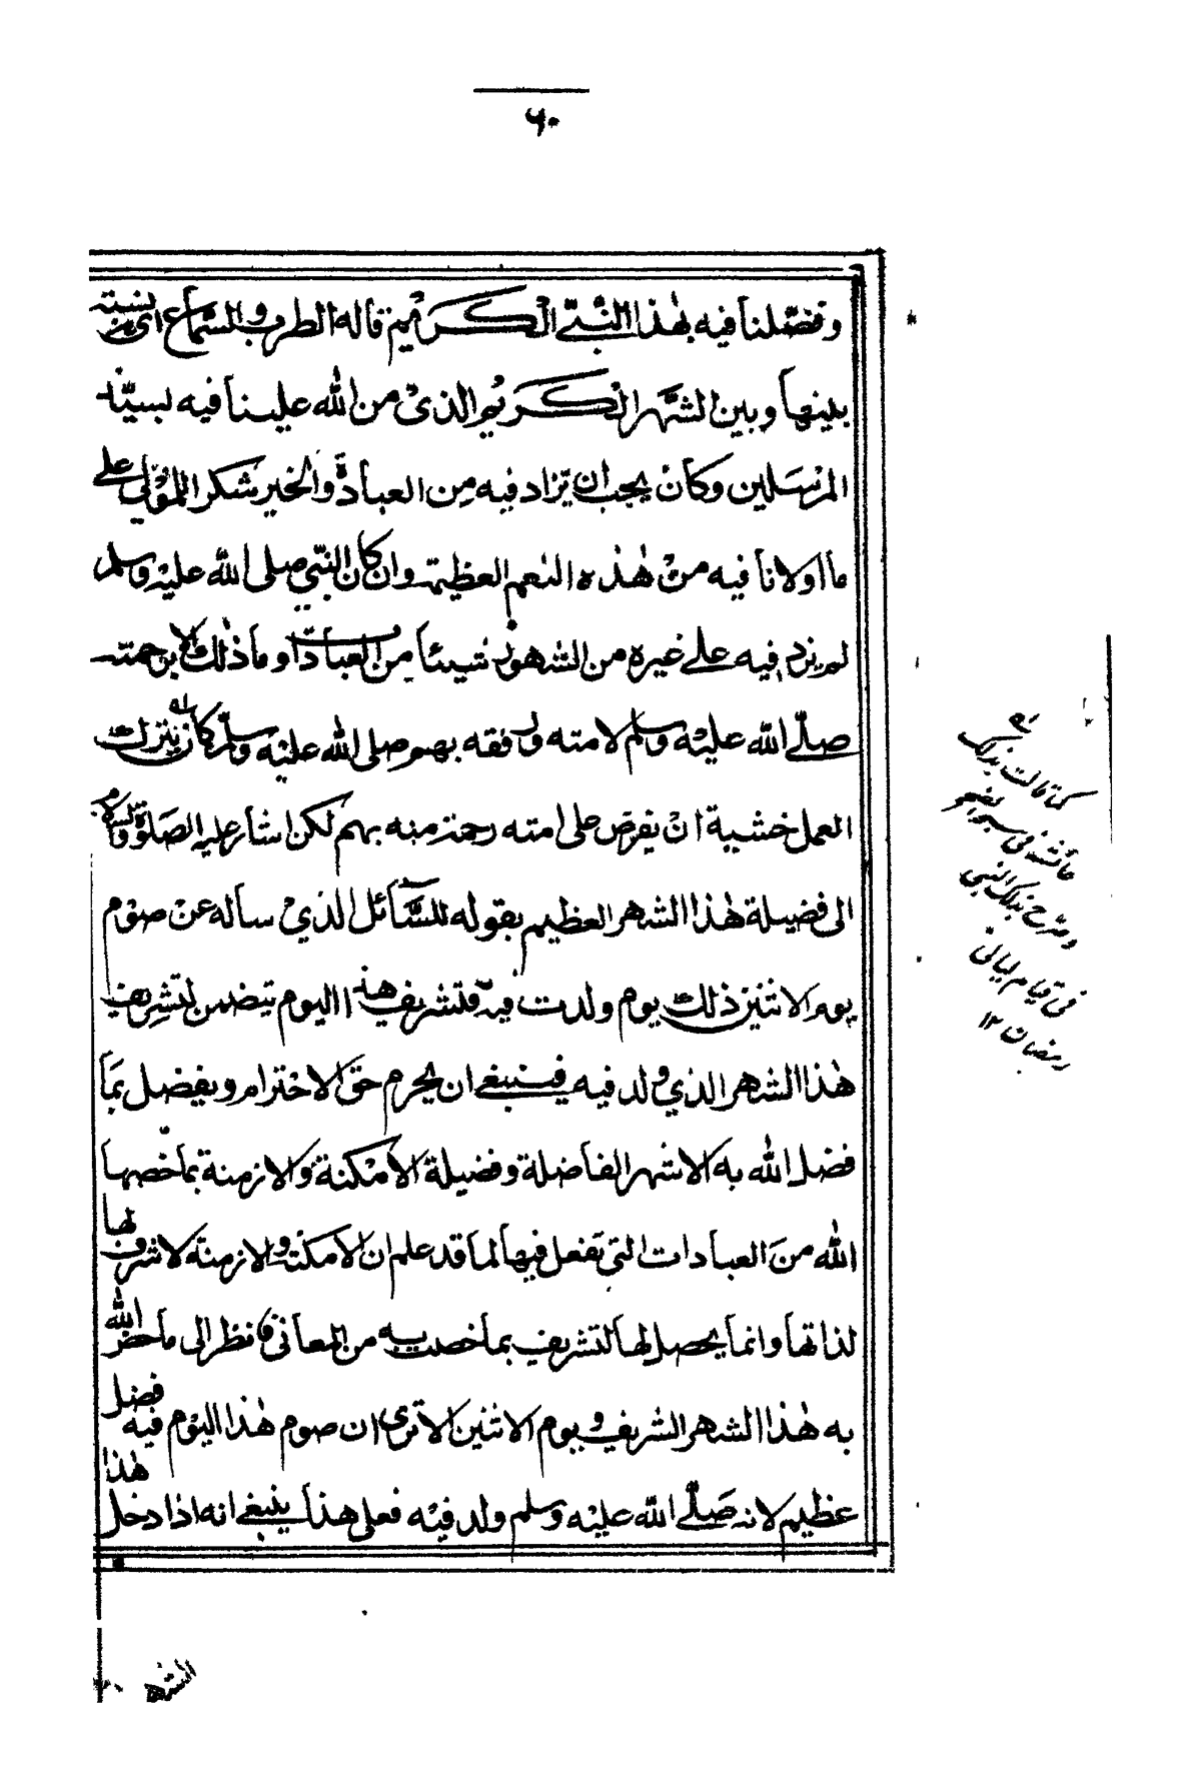 ٦٠
وفضلنا فيه بهذا النبي الكريم فآلة الطرب والسماع اي نسبة
بينها وبين الشهر الكريم الذي من الله علينا فيه بسيد
المرسلين وكان يجب ان يزاد فيه من العبادة والخير شكر اللمولى على
ما اولانا فيه من هذه النعم العظيمة وان كان النبي صلى الله عليه وسلم
لم يزد فيه على غيره من الشهور شيئا من العبادات وما ذلك الا برحمته
صلى الله عليه وسلم لامته ورفقه بهم صلى الله عليه وسلم كان يترك
العمل خشية ان يفرض على امته رحمة منه بهم لكن اشار عليه الصلوة والسلام
الى فضيلة هذا الشهر العظيم بقوله للسائل الذي ساله عن صوم
يوم الاثنين ذلك يوم ولدت فيه فتشريف هذا اليوم تيضمن لتشريف
هذا الشهر الذي ولد فيه فينبغي ان يحرم حق الاحترام ويفضل بما
فضل الله به الاشهر الفاضلة وفضيلة الامكنة والازمنة بما خصها
الله من العبادات التي تفعل فيها لما قد علم ان الامكنة والازمنة لا شرف لها
لذاتها وانما يحصل لها التشريف بما خصت به من المعاني فانظر الى ما خص الله
به هذا الشهر الشريف ويوم الاثنين الا ترى ان صوم هذا اليوم فيه فضل
عظيم لانه صلى الله عليه وسلم ولد فيه فعلى هذا ينبغي انه اذا دخل هذا
الشهر
كما قالت بذلك
عائشة في سبحة الضحى
وصرح بذلك النبي
في قيام ليالي
رمضان ١٢